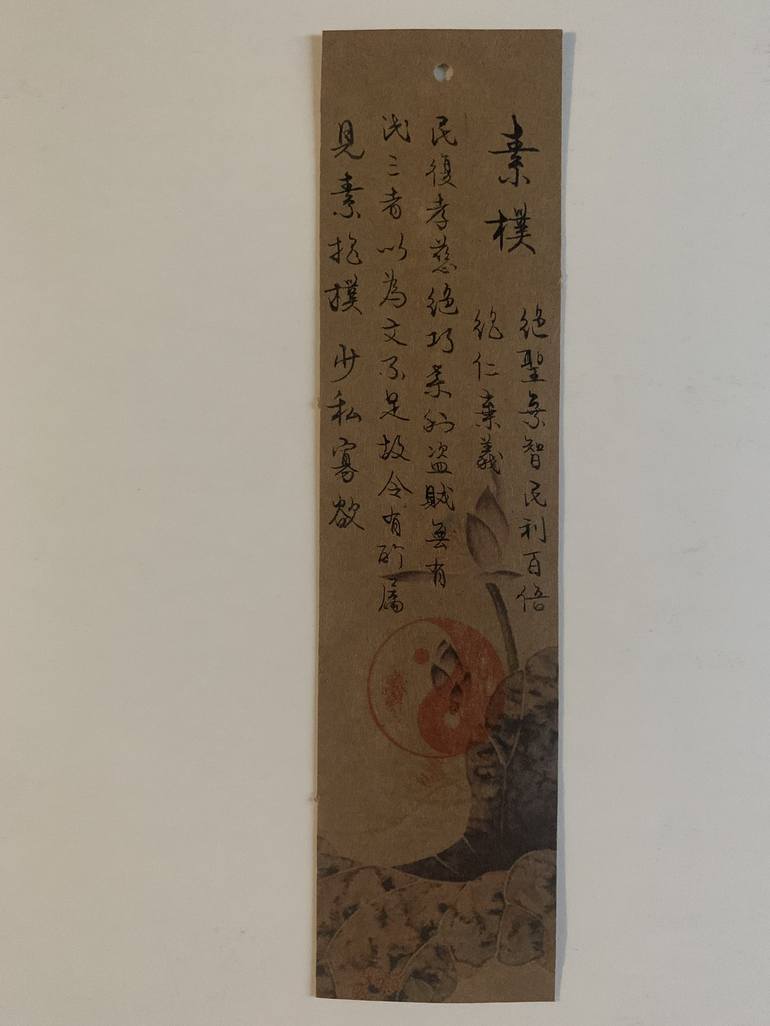 素樸
絕聖棄智民利百倍
絕仁棄義
民復孝慈絕巧棄利盜賊無有
此三者以為文不足故令有所屬
見素抱樸 少私寡欲